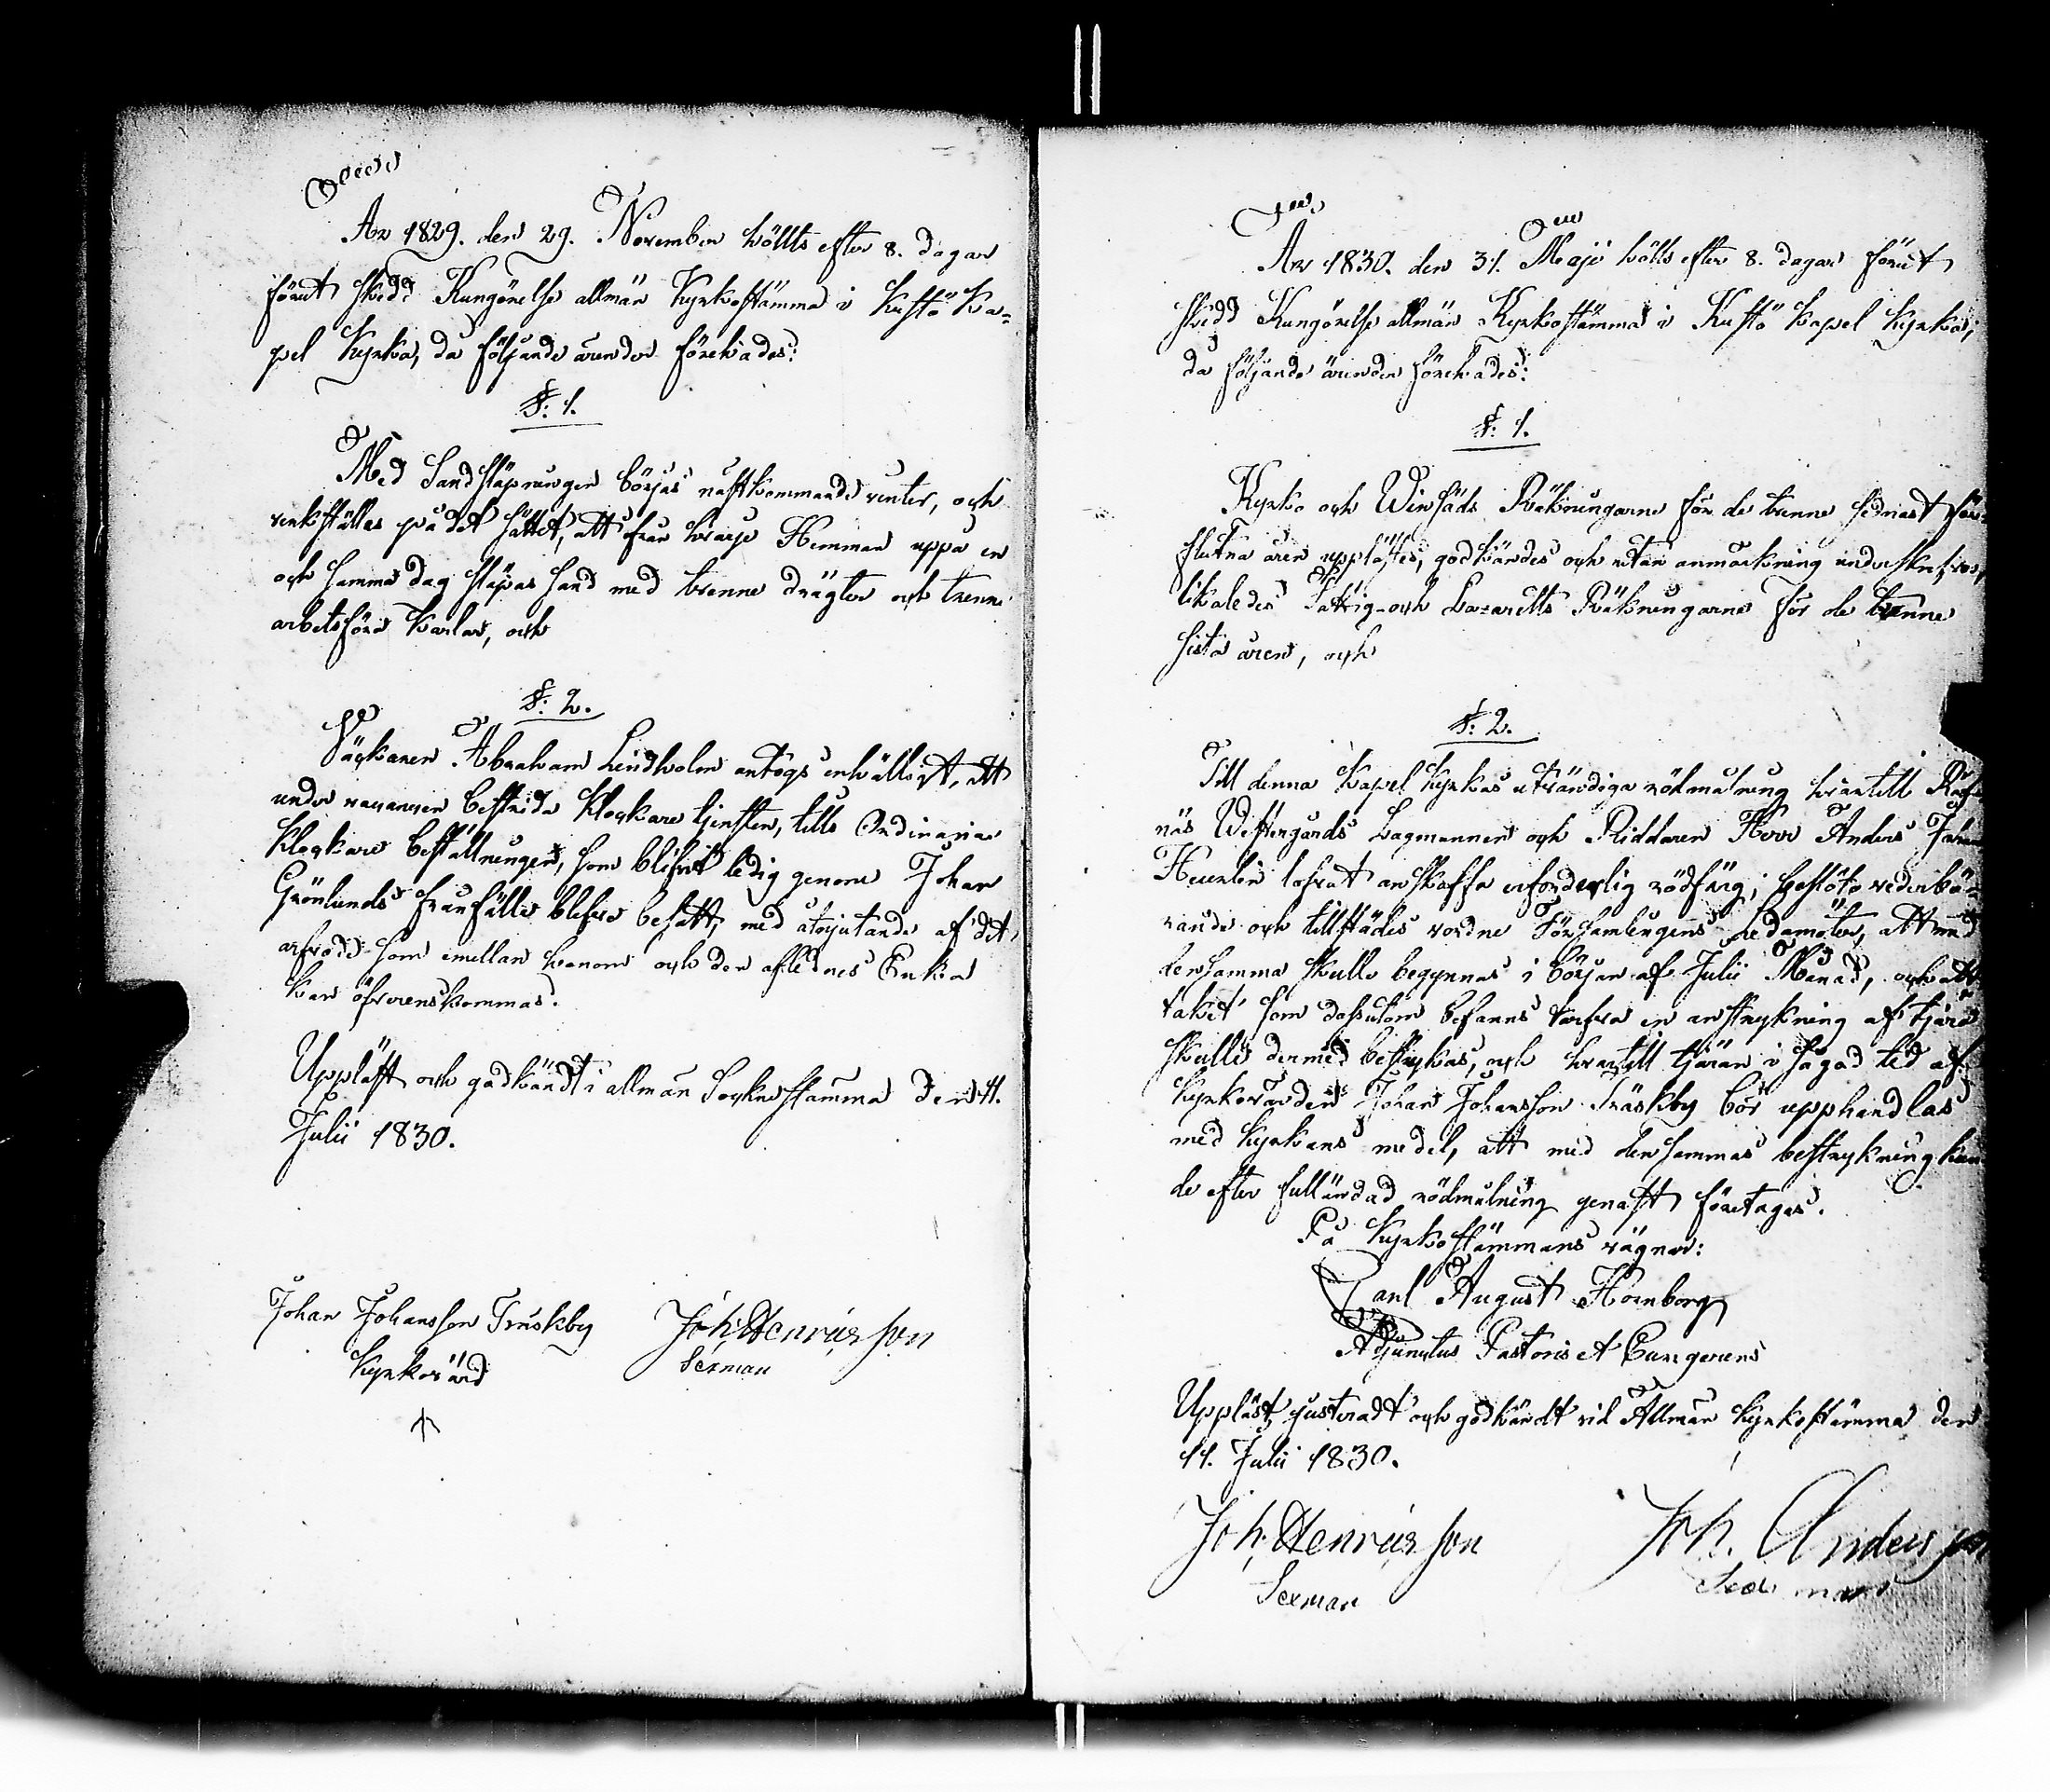 År 1829. den 29. November hölts efter 8. dagar
förut skedd Kungörelse allmän Kyrkostämma i Kustö Ka-
pel Kyrka, då följande ärender förehades:
§: 1.
Med Sandsläpningen börjas nästkommande vinter, och
verkställes på det sättet, att från hvarje Hemman uppå en
och samma dag släpas sand med trenne drägter och trenne
arbetsföra karlar, och
§: 2.
Väckaren Abraham Lindholm antogs enhälligt, att
under vacancen bestrida Klockare tjensten, tills Ordinarie
Klockare beställningen, som blifvit ledig genom Johan
Grönlunds frånfälle blefve besatt, med åtnjutande af det
arfvode som emellan honom och den aflednes Enka
kan öfverenskommas.
Uppläst och godkändt i allmän Sockne stämma den 11.
Julii 1830.
Johan Johansson Träskby
Kyrkovärd
Joh: Henricsson
Sexman
År 1830. den 31. Maji hölls efter 8. dagar förut
skedd Kungörelse allmän Kyrkostämma i Kustö Kapel Kyrka,
då följande ärenden förehades:
§: 1.
Kyrko och Winsäds Räkningarne för de trenne sednast för-
flutna åren upplästes, godkändes och utan anmärkning underskrefvos,
likaledes Fattig- och Lazaretts Räkningarne för de trenne
sista åren, och
§: 2.
Till denna Kapel Kyrkas utvändiga rödmålning hvartill
näs Westergårds Lagmannen och Riddaren Herr Anders
Heurlin lofvat anskaffa erforderlig rödfärg; beslöto vederbö-
rande och tillstädes vordne Församlingens Ledamöter, att med
densamma skulle begynnas i början af Julii Månad, och att
taket som dessutom befanns tarfva en anstrykning af tjära
skulle dermed bestrykas, och hvartill tjäran i sagad tid af
Kyrkovärden Johan Johansson Träskby bör upphandlas
med Kyrkans medel, att med densammas bestrykning kun-
de efter fulländad rödmålning genast företagas.
På Kyrkostämmans vägnar:
Carl August Hornborg
Adjunctus Pastoris et Curam gerens
Uppläst, justeradt och godkändt vid Allmän Kyrkostämma den
11. Julii 1830.
Joh: Henricsson
Sexman
Joh. Andersson
Sexman